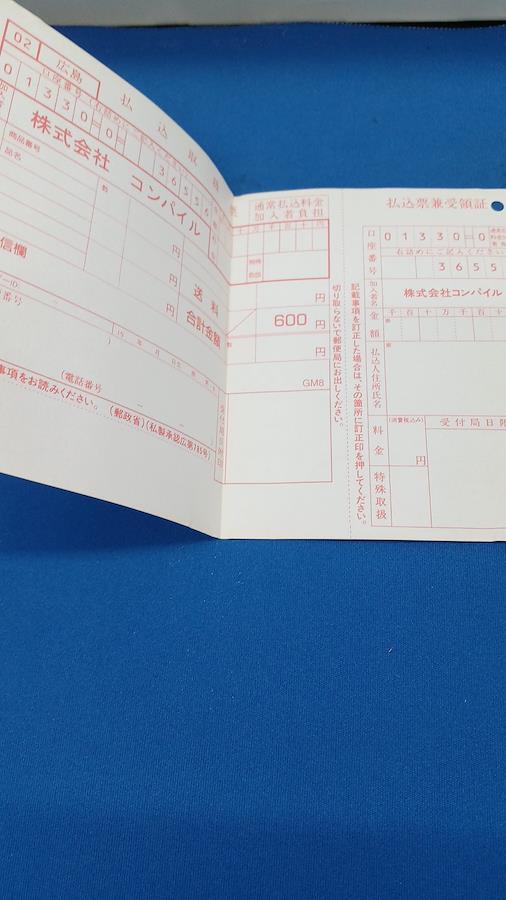 02 広島
払込取扱票
口座番号(右詰めにご記入ください)
01330=0= 36556
株式会社 コンパイル
商品番号
品名
数
円
円
円
送料
合計金額
信欄
(電話番号 － － )
事項をお読みください。(郵政省)(私製承認広第785号)
通常払込料金
加入者負担
千百十万千百十円
円
600 円
円
GM8
切り取らないで郵便局にお出しください。
記載事項を訂正した場合は、その箇所に訂正印を押してください。
払込票兼受領証
口座番号
01330=0
右詰めにご記入ください
3655
加入者名
株式会社コンパイル
金額
千百十万千百十
払込人住所氏名
料金
(消費税込み)
円
受付局日附
特殊取扱